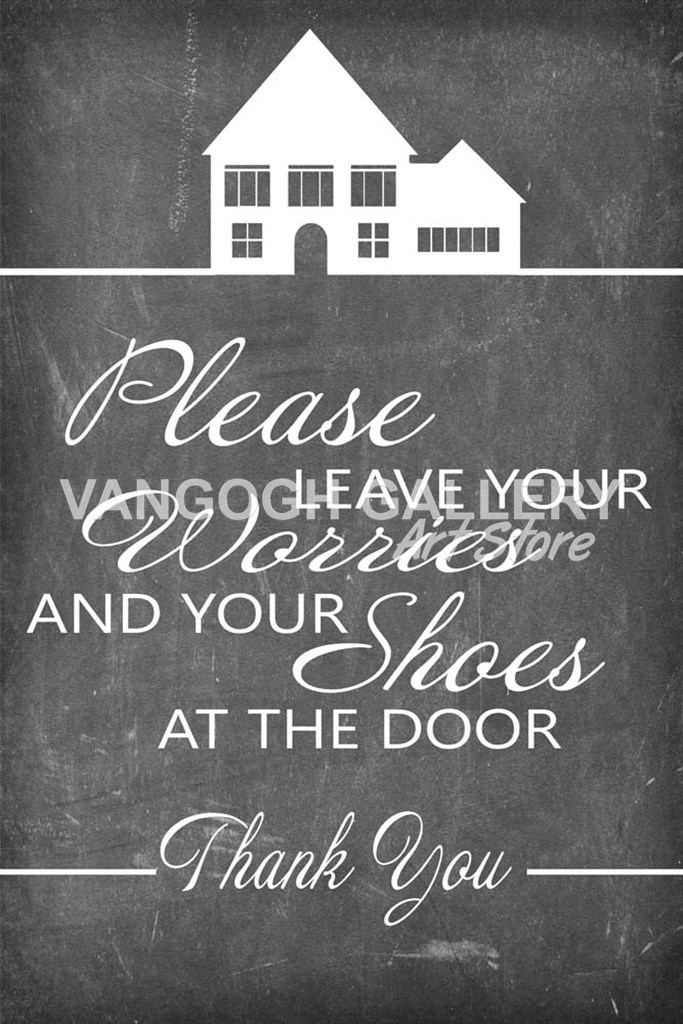 Please
LEAVE YOUR
VANGOGH GALLERY
Worries
Art Store
AND YOUR Shoes
AT THE DOOR
Thank You